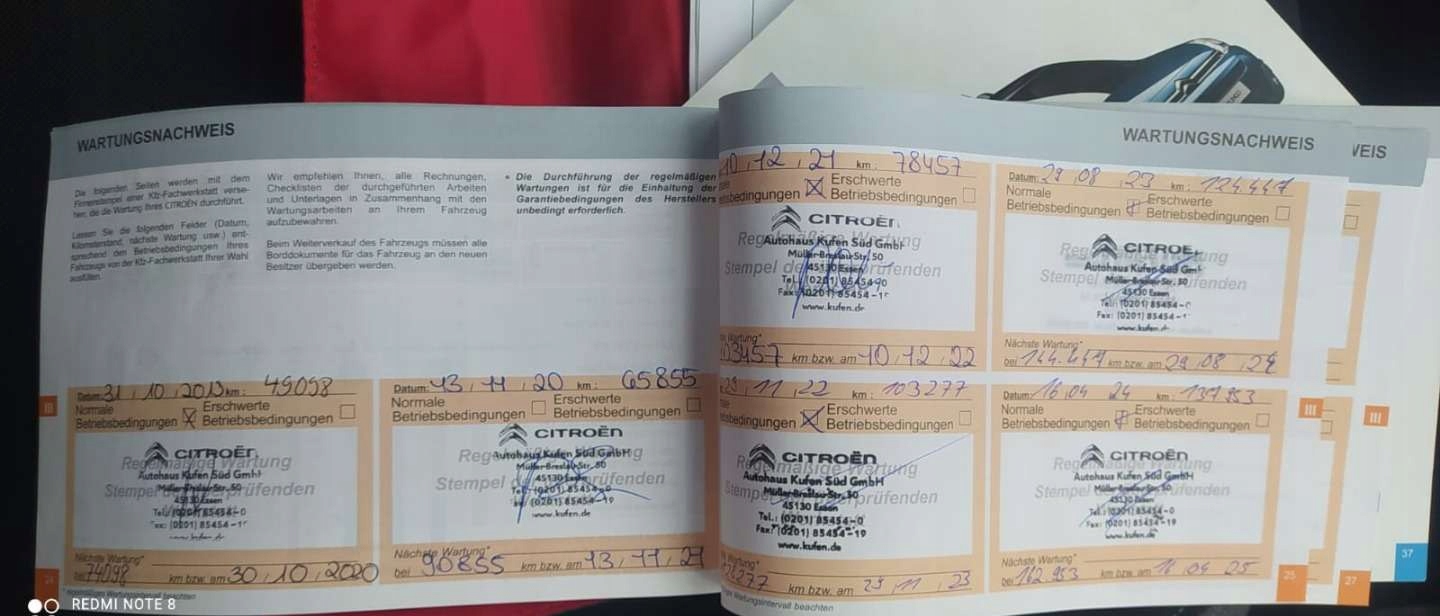 WARTUNGSNACHWEIS
Die folgenden Seiten werden mit dem
Firmenstempel einer Kfz-Fachwerkstatt verse-
hen, die die Wartung Ihres CITROËN durchführt.
Lassen Sie die folgenden Felder (Datum,
Kilometerstand, nächste Wartung usw.) ent-
sprechend den Betriebsbedingungen Ihres
Fahrzeugs von der Kfz-Fachwerkstatt Ihrer Wahl
ausfüllen.
Wir empfehlen Ihnen, alle Rechnungen,
Checklisten der durchgeführten Arbeiten
und Unterlagen in Zusammenhang mit den
Wartungsarbeiten an Ihrem Fahrzeug
aufzubewahren.
Beim Weiterverkauf des Fahrzeugs müssen alle
Borddokumente für das Fahrzeug an den neuen
Besitzer übergeben werden.
• Die Durchführung der regelmäßigen
Wartungen ist für die Einhaltung der
Garantiebedingungen des Herstellers
unbedingt erforderlich.
Datum: 31, 10, 2019 km: 49098
Normale Betriebsbedingungen
Erschwerte Betriebsbedingungen
CITROËN
Regelmäßige Wartung
Autohaus Kufen Süd GmbH
Müller-Breslau-Str. 50
Stempel
45130 Essen
(0201) 85454-
Nächste Wartung*
bei 74098 km bzw. am 30, 10, 2020
Datum: 13 11 20 km: 65855
Normale Betriebsbedingungen
Erschwerte Betriebsbedingungen
CITROËN
Autohaus Kufen Süd GmbH
Müller-Breslau-Str. 50
45130 Essen
Stempel
Tel.: (0201) 85454-0
(0201) 85454-19
www.kufen.de
Nächste Wartung*
bei 90855 km bzw. am 13, 11, 21
24
WARTUNGSNACHWEIS
10, 12, 21 km: 78457
Erschwerte Betriebsbedingungen
CITROËN
Regelmäßige Wartung
Autohaus Kufen Süd GmbH
Müller-Breslau-Str. 50
45130 Essen
Tel.: (0201) 85454-0
Fax: (0201) 85454-1
www.kufen.de
103457 km bzw. am 10, 12, 22
Datum: 29, 08, 23 km: 124.447
Normale Betriebsbedingungen
Erschwerte Betriebsbedingungen
CITROË
Regelmäßige Wartung
Autohaus Kufen Süd Gm
Müller-Breslau-Str. 50
45130 Essen
Tel.: (0201) 85454-0
Fax: (0201) 85454-1
www.kufen.d
Nächste Wartung*
bei 144.447 km bzw. am 29, 08, 24
11, 22 km: 103277
Erschwerte Betriebsbedingungen
CITROËN
Regelmäßige Wartung
Autohaus Kufen Süd GmbH
Müller-Breslau-Str. 50
45130 Essen
Tel.: (0201) 85454-0
Fax: (0201) 85454-19
www.kufen.de
km bzw. am 11, 23
Datum: 16, 04 24 km: 137.953
Normale Betriebsbedingungen
Erschwerte Betriebsbedingungen
CITROËN
Regelmäßige Wartung
Autohaus Kufen Süd GmbH
Müller-Breslau-Str. 50
45130 Essen
Tel.: (0201) 85454-0
Fax: (0201) 85454-19
www.kufen.de
Nächste Wartung*
bei 162 953 km bzw. am 16 04 25
III
25
27
37
REDMI NOTE 8